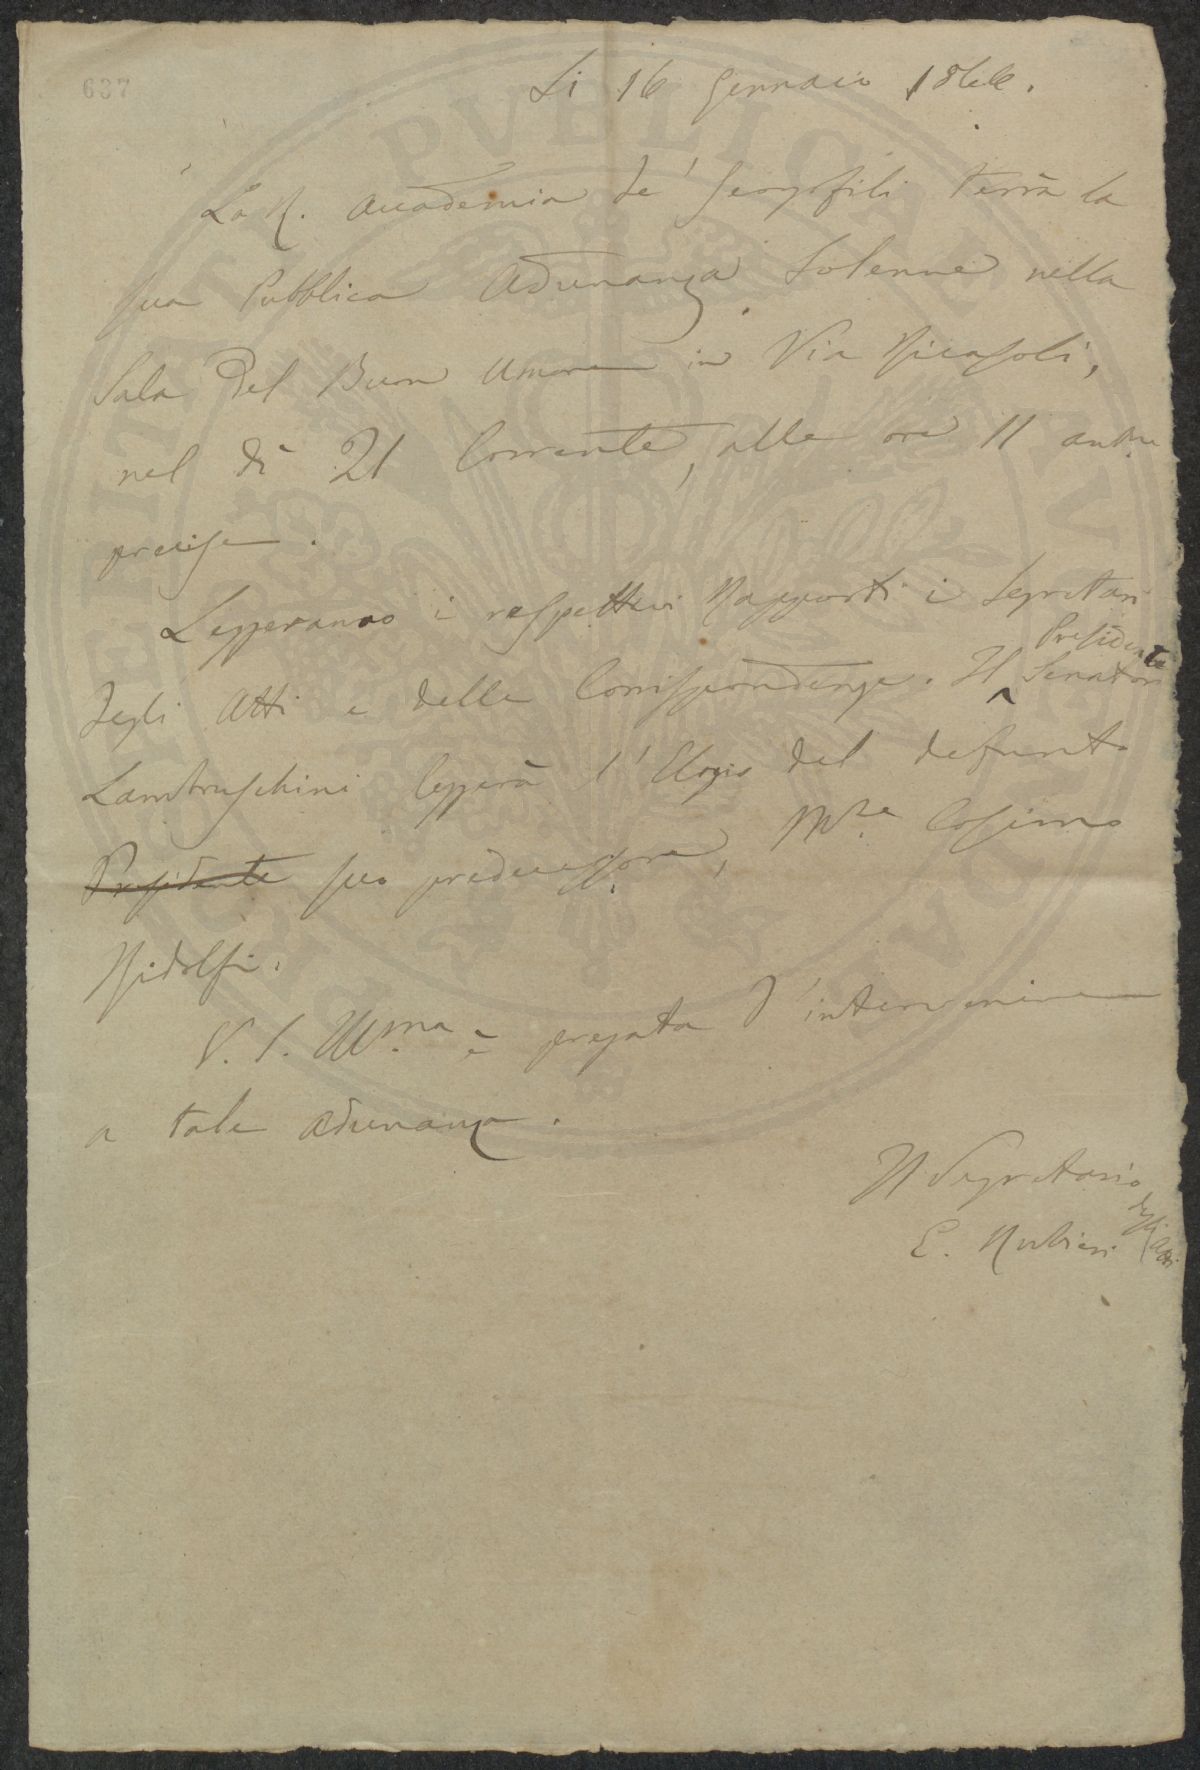 637
Li 16 Gennaio 1866.
La R. Accademia de' Georgofili terrà la
sua Pubblica Adunanza Solenne nella
Sala del Buon Umore in Via Ricasoli,
nel dì 21 Corrente, alle ore 11 antme
precise.
Leggeranno i respettivi Rapporti i Segretari
degli Atti e delle Corrispondenze. Il Presidente Senatore
Lambruschini leggerà l'Elogio del defunto
Presidente suo predecessore, Mse Cosimo
Ridolfi.
V. S. Illma è pregata d'intervenire
a tale adunanza.
Il Segretario degli Atti
E. Rubieri
PUBLICAE
PROSPERITATI